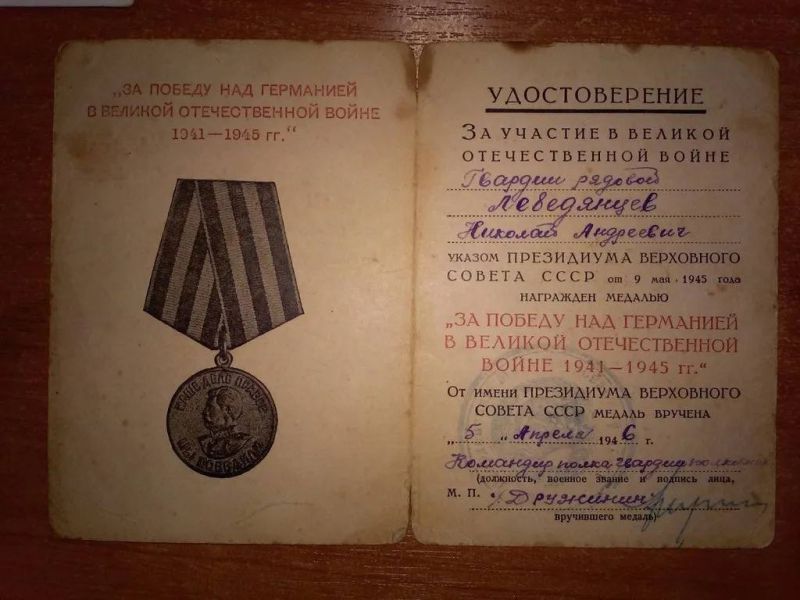 „ЗА ПОБЕДУ НАД ГЕРМАНИЕЙ
В ВЕЛИКОЙ ОТЕЧЕСТВЕННОЙ ВОЙНЕ
1941—1945 гг.“
НАШЕ ДЕЛО ПРАВОЕ
МЫ ПОБЕДИЛИ
УДОСТОВЕРЕНИЕ
ЗА УЧАСТИЕ В ВЕЛИКОЙ
ОТЕЧЕСТВЕННОЙ ВОЙНЕ
Гвардии рядовой
Лебедянцев
Николай Андреевич
УКАЗОМ ПРЕЗИДИУМА ВЕРХОВНОГО
СОВЕТА СССР от 9 мая 1945 года
НАГРАЖДЕН МЕДАЛЬЮ
„ЗА ПОБЕДУ НАД ГЕРМАНИЕЙ
В ВЕЛИКОЙ ОТЕЧЕСТВЕННОЙ
ВОЙНЕ 1941—1945 гг.“
От ИМЕНИ ПРЕЗИДИУМА ВЕРХОВНОГО
СОВЕТА СССР МЕДАЛЬ ВРУЧЕНА
„5“ Апреля 1946 г.
Командир полка гвардии полковник
(должность, военное звание и подпись лица,
М. П. Дружинин
вручившего медаль)